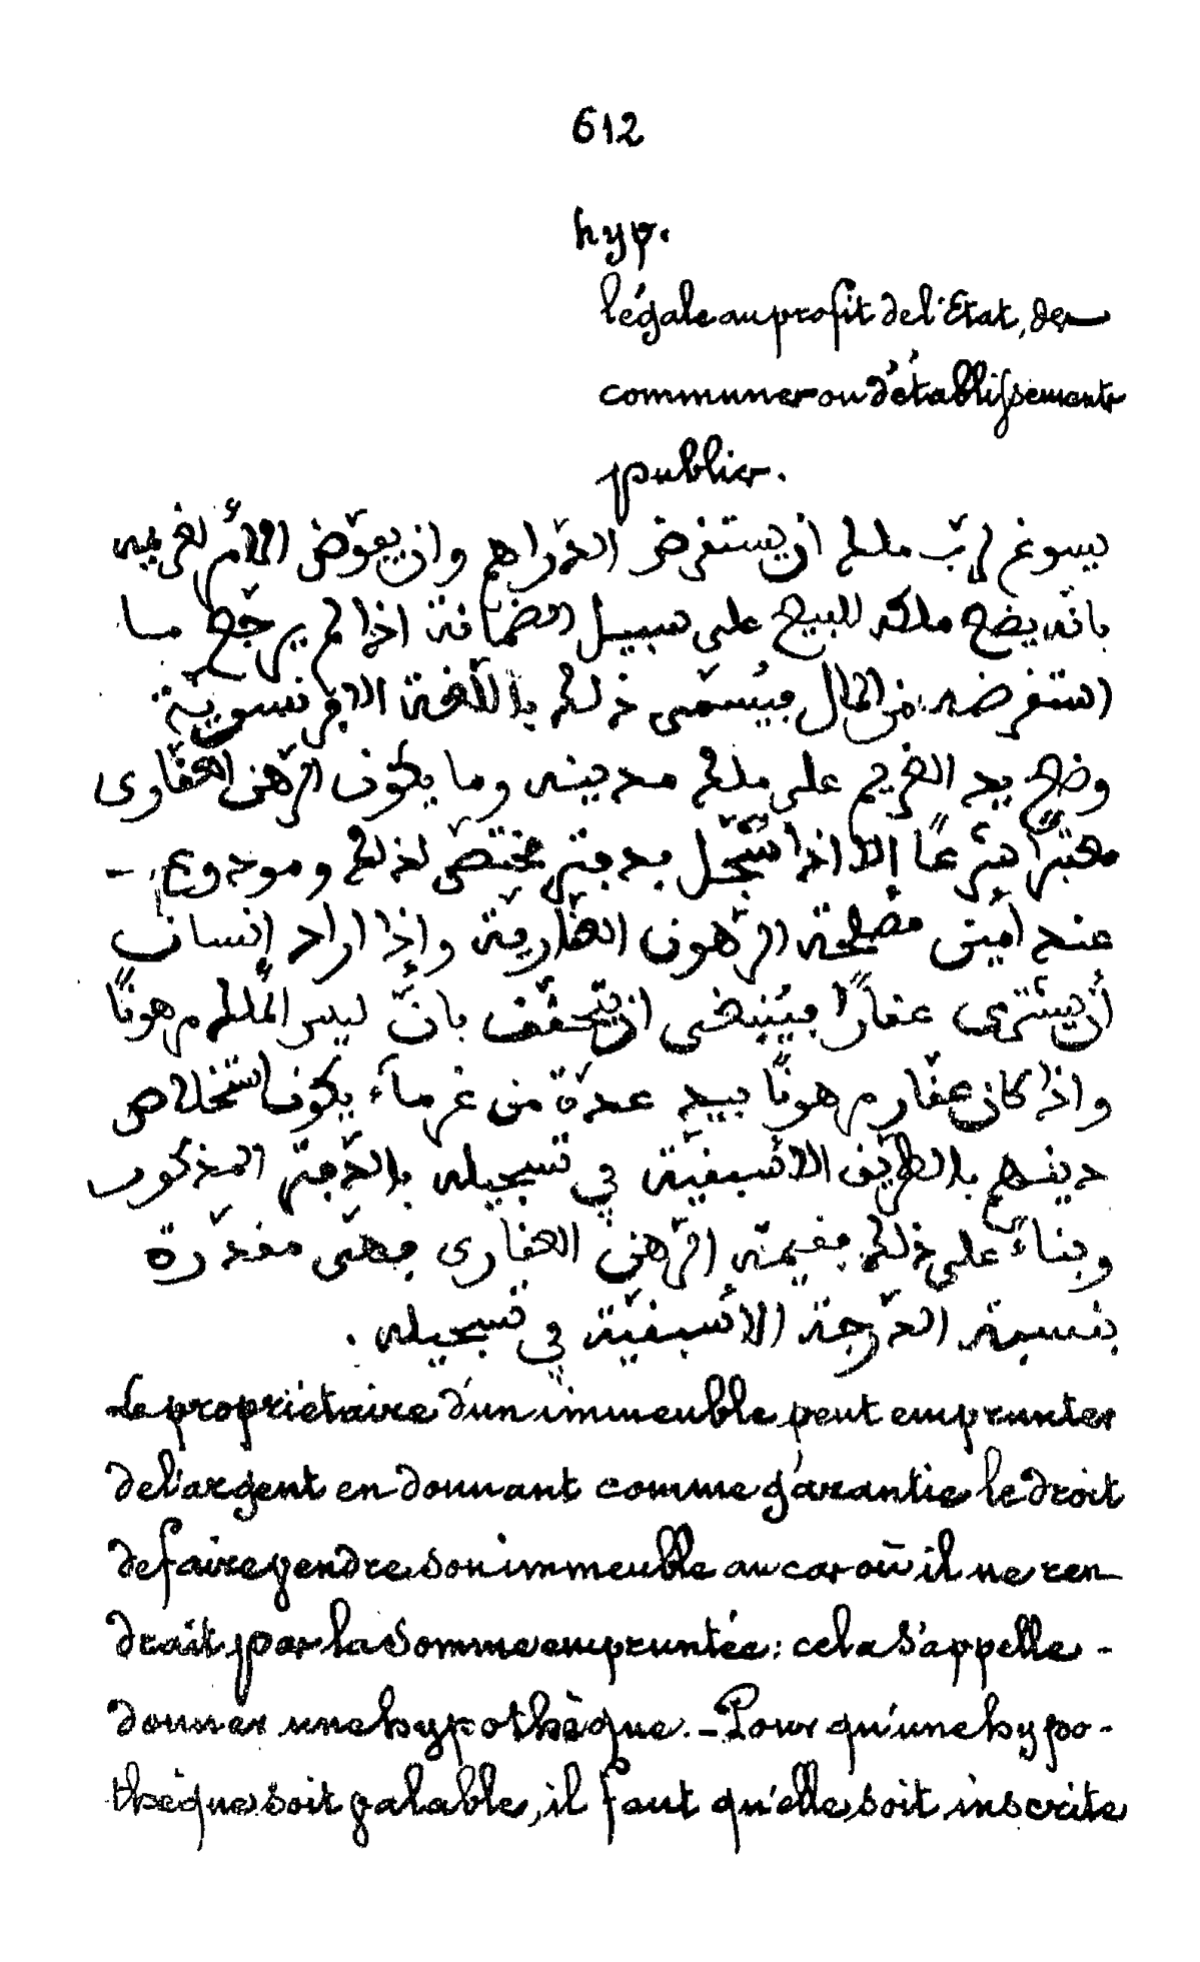 612
hyp.
légale au profit de l'Etat, des
communes ou d'établissements
publics.
يسوغ لربّ ملك ان يستقرض الدّراهم وان يعوّض الأمر لغريمه
بانّه يضع ملكه للبيع على سبيل الضمانة اذا لم يرجّع ما
استقرضه من المال فيُسمّى ذلك باللّغة الافرنسويّة
وضع يد الغريم على ملك مدينه وما يكون الرّهن العقّاري
معتبرًا شرعًا إلا اذا سُجّل بدفتر مختصّ لذلك وموضوع
عند أمين مصلحة الرّهون العقّارية وإذا اراد إنسان
أن يشتري عقّارًا فيُنبغي ان يتحقّق بانّ ليس الملك مرهونًا
واذا كان عقّار مرهونًا بيد عدّة من غرماء يكون استخلاص
دينهم بالطريق الاسبقيّة في تسجيله بالدّفتر المذكور
وبناءً على ذلك فقيمة الرّهن العقاري فهي مقدّرة
بنسبة الدّرجة الأسبقيّة في تسجيله.
Le propriétaire d'un immeuble peut emprunter
de l'argent en donnant comme garantie le droit
de faire vendre son immeuble au cas où il ne ren
drait pas la somme empruntée: cela s'appelle -
donner une hypothèque. - Pour qu'une hypo-
thèque soit valable, il faut qu'elle soit inscrite